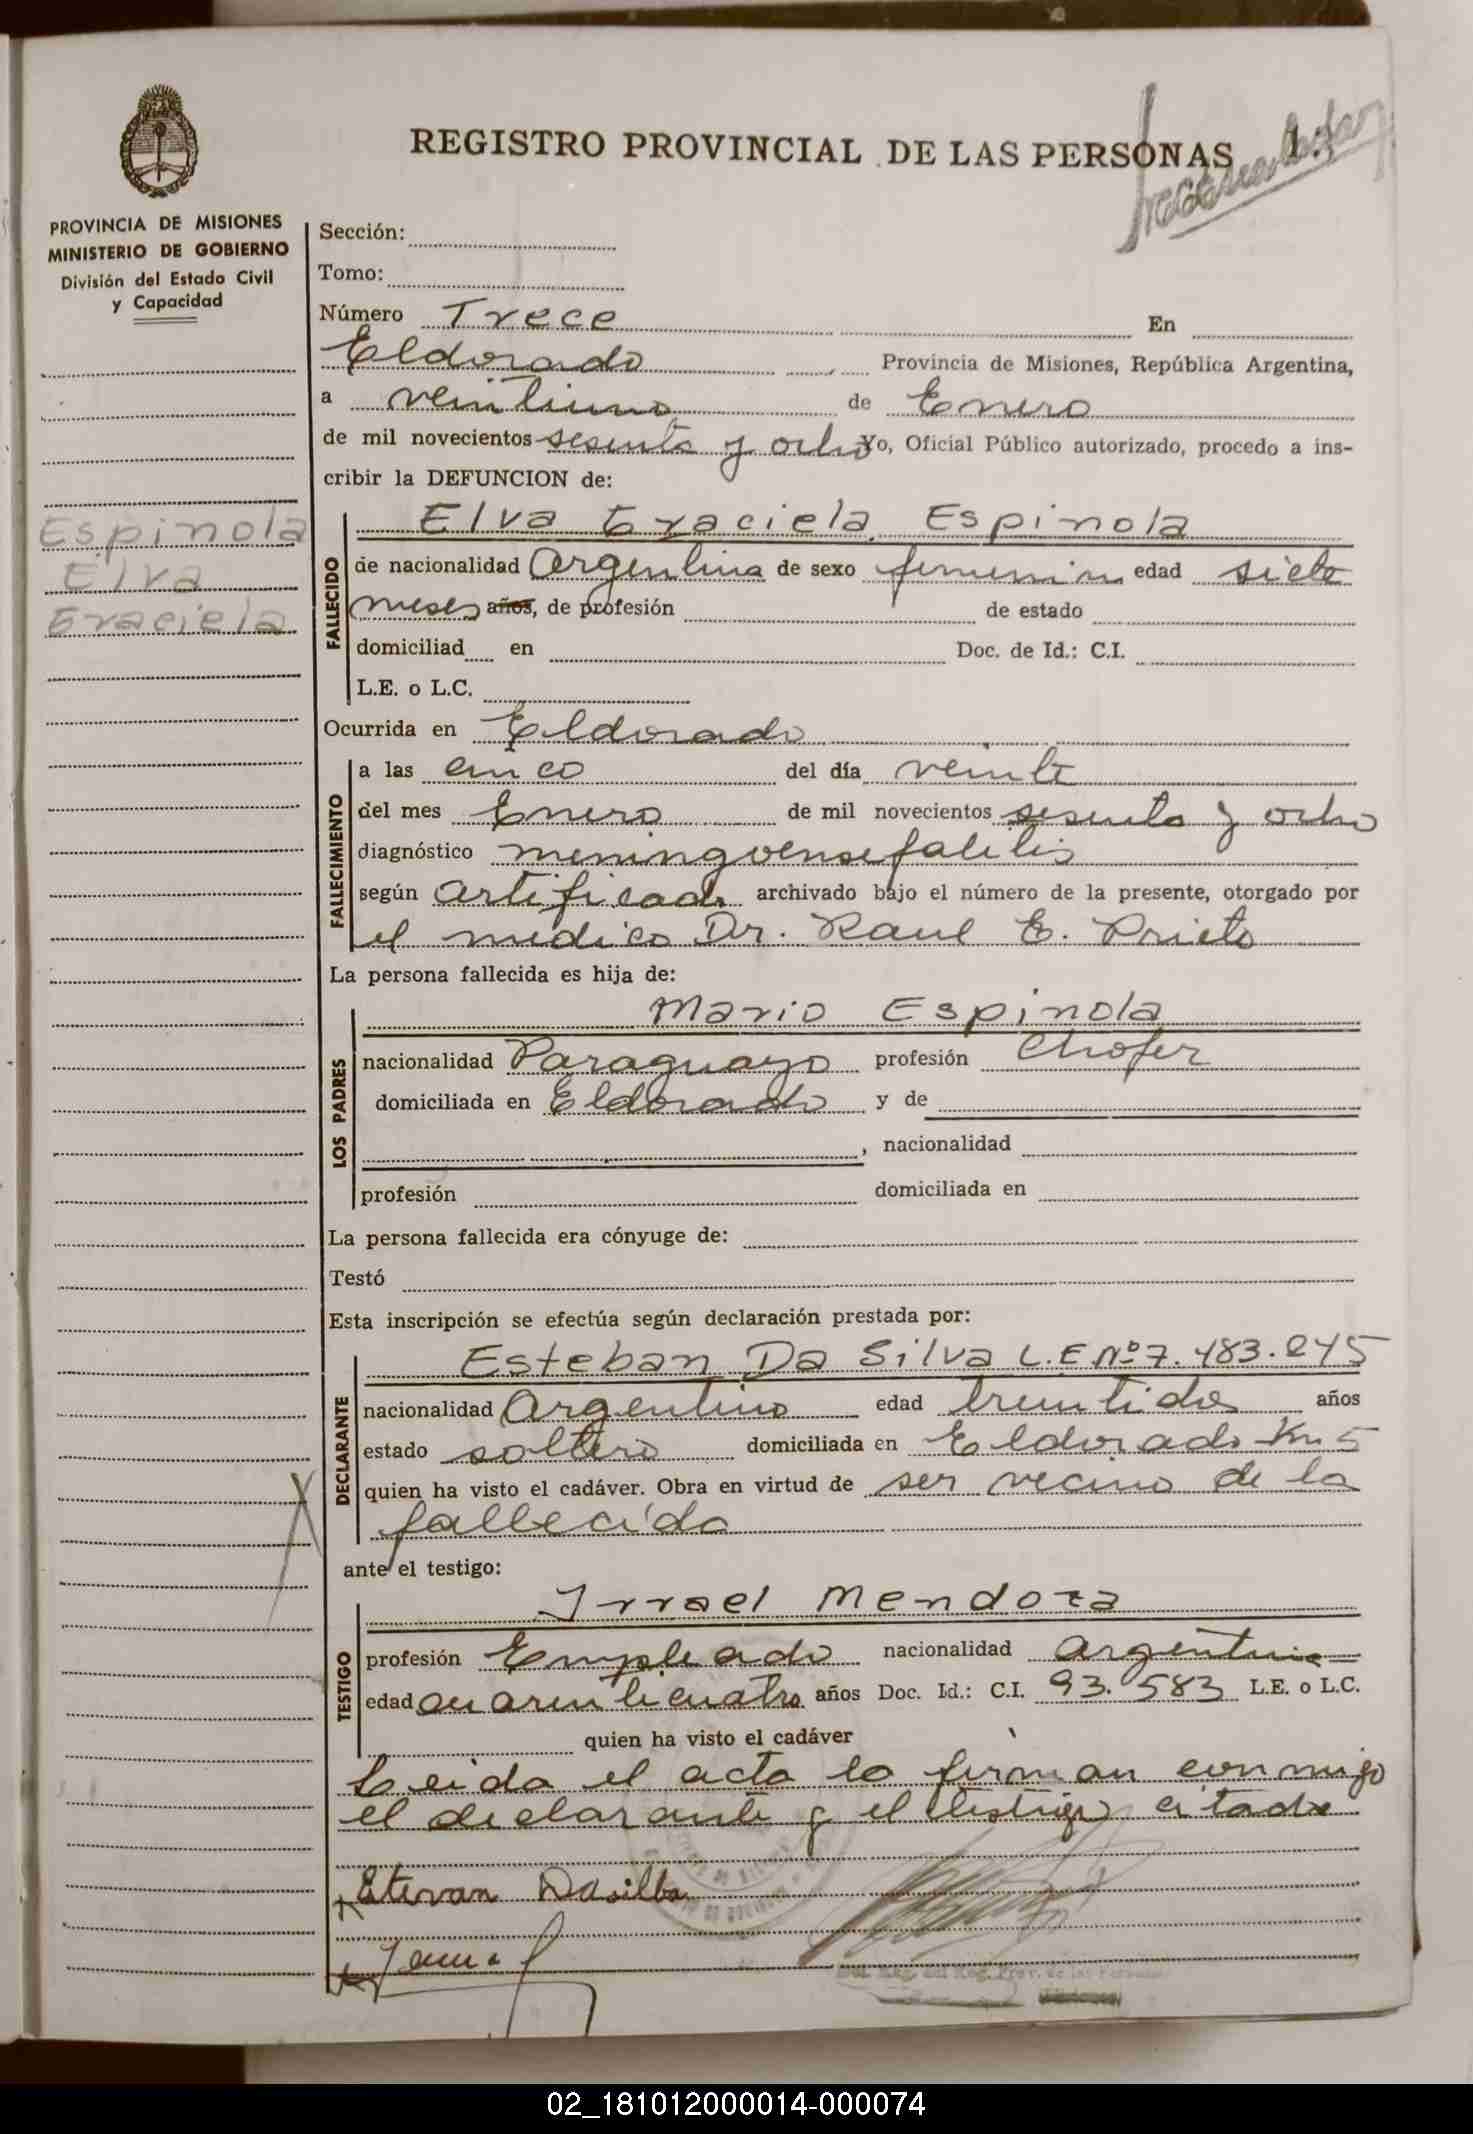 REGISTRO PROVINCIAL DE LAS PERSONAS
PROVINCIA DE MISIONES
MINISTERIO DE GOBIERNO
División del Estado Civil
y Capacidad
Espinola
Elva
Graciela
Sección:
Tomo:
Número Trece En
Eldorado Provincia de Misiones, República Argentina,
a veintiuno de Enero
de mil novecientos sesenta y ocho Yo, Oficial Público autorizado, procedo a ins-
cribir la DEFUNCION de:
FALLECIDO
Elva Graciela Espinola
de nacionalidad Argentina de sexo femenin edad siete
meses años, de profesión de estado
domiciliad en Doc. de Id.: C.I.
L.E. o L.C.
Ocurrida en Eldorado
FALLECIMIENTO
a las cinco del día veinte
del mes Enero de mil novecientos sesenta y ocho
diagnóstico meningoensefalitis
según certificado archivado bajo el número de la presente, otorgado por
el medico Dr. Raul E. Prieto
La persona fallecida es hija de:
LOS PADRES
Mario Espinola
nacionalidad Paraguayo profesión Chofer
domiciliada en Eldorado y de
, nacionalidad
profesión domiciliada en
La persona fallecida era cónyuge de:
Testó
Esta inscripción se efectúa según declaración prestada por:
DECLARANTE
Esteban Da Silva L.E Nº 7.483.245
nacionalidad Argentino edad treintidos años
estado soltero domiciliada en Eldorado Km 5
quien ha visto el cadáver. Obra en virtud de ser vecino de la
fallecida
ante el testigo:
TESTIGO
Irrael Mendoza
profesión Empleado nacionalidad argentino
edad cuarenticuatro años Doc. Id.: C.I. 93.583 L.E. o L.C.
quien ha visto el cadáver
Leida el acta lo firman conmigo
el declarante y el testigo citado
Estevan Dasilba
02_181012000014-000074